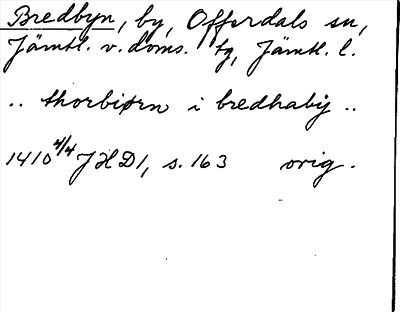 Bredbyn, by, Offerdals sn,
Jämtl. v. doms. tg, Jämtl. l.
.. thorbiørn i bredhabij ..
1410 4/4 JHD1, s. 163 orig.